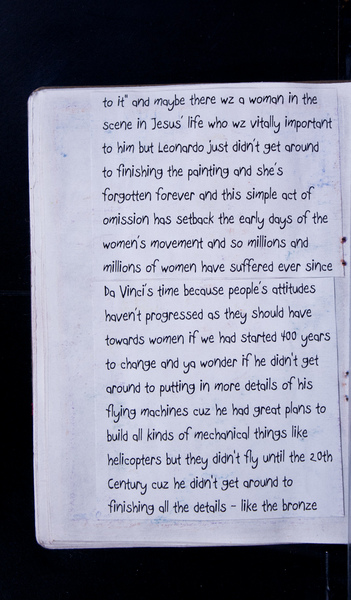 to it" and maybe there wz a woman in the
scene in Jesus' life who wz vitally important
to him but Leonardo just didn't get around
to finishing the painting and she's
forgotten forever and this simple act of
omission has setback the early days of the
women's movement and so millions and
millions of women have suffered ever since
Da Vinci's time because people's attitudes
haven't progressed as they should have
towards women if we had started 400 years
to change and ya wonder if he didn't get
around to putting in more details of his
flying machines cuz he had great plans to
build all kinds of mechanical things like
helicopters but they didn't fly until the 20th
Century cuz he didn't get around to
finishing all the details - like the bronze